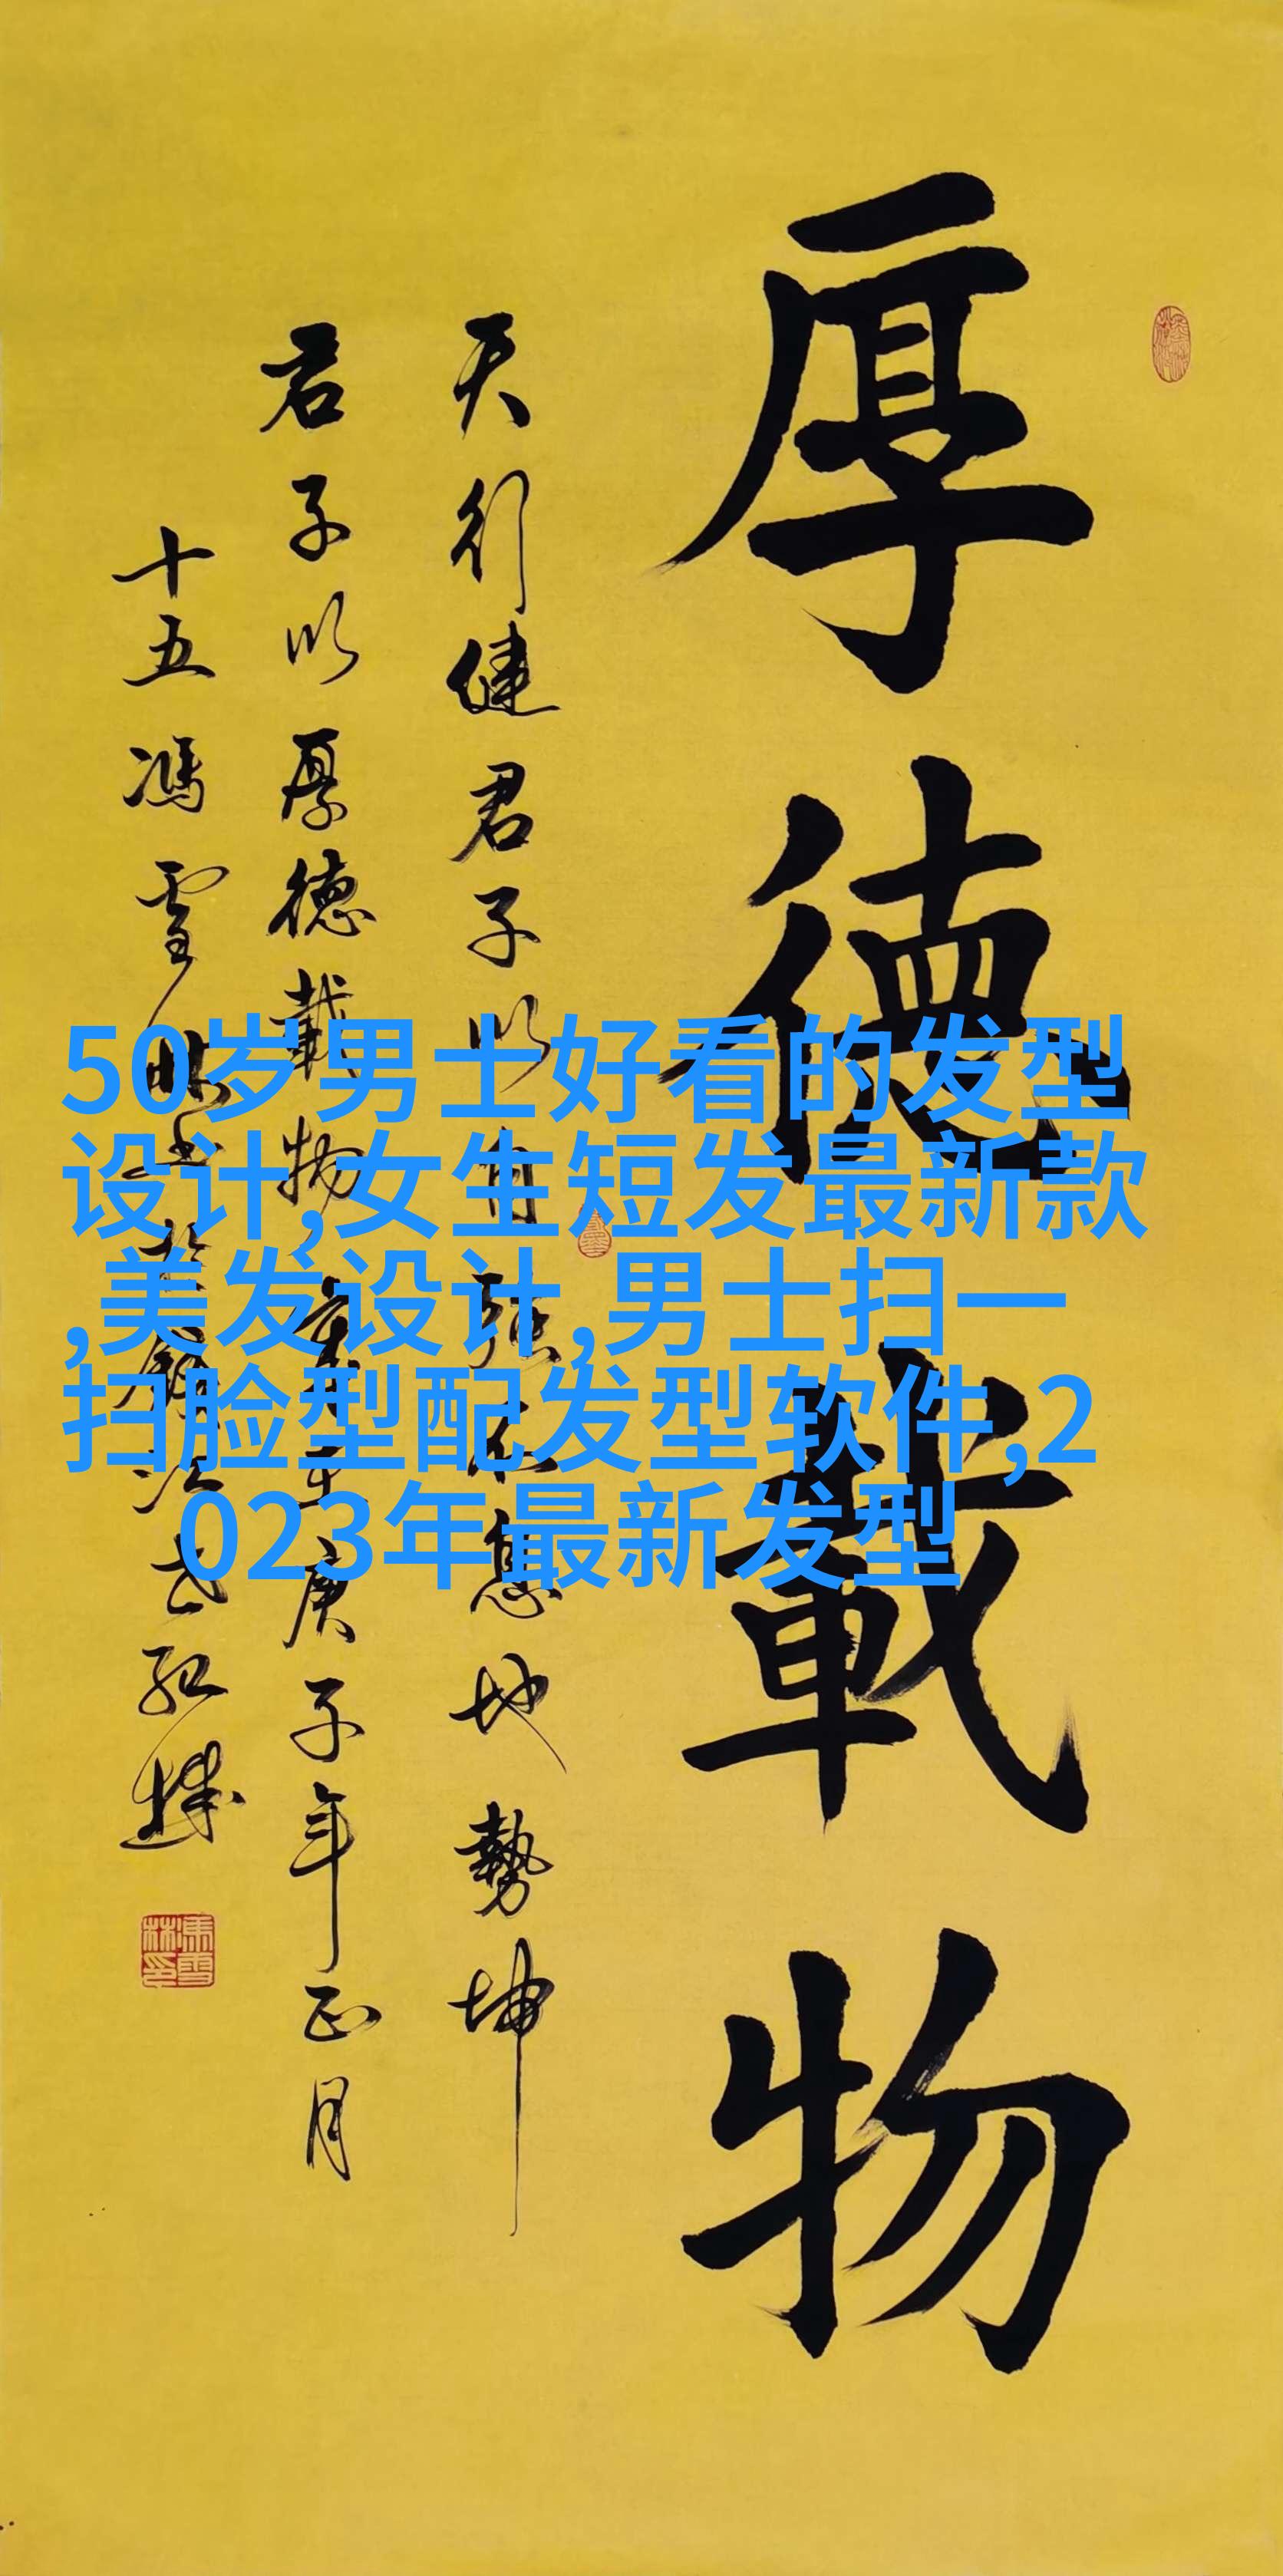 厚德載物
天行健君子以自強不息地勢坤
君子以厚德載物 庚子年正月
十五馮雪林
50岁男士好看的发型
设计,女生短发最新款
,美发设计,男士扫一
扫脸型配发型软件,2
023年最新发型
馮雪林印